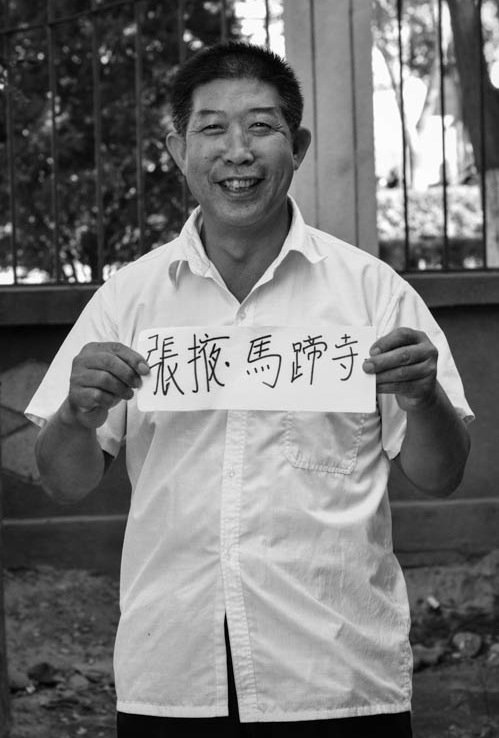 張掖·馬蹄寺